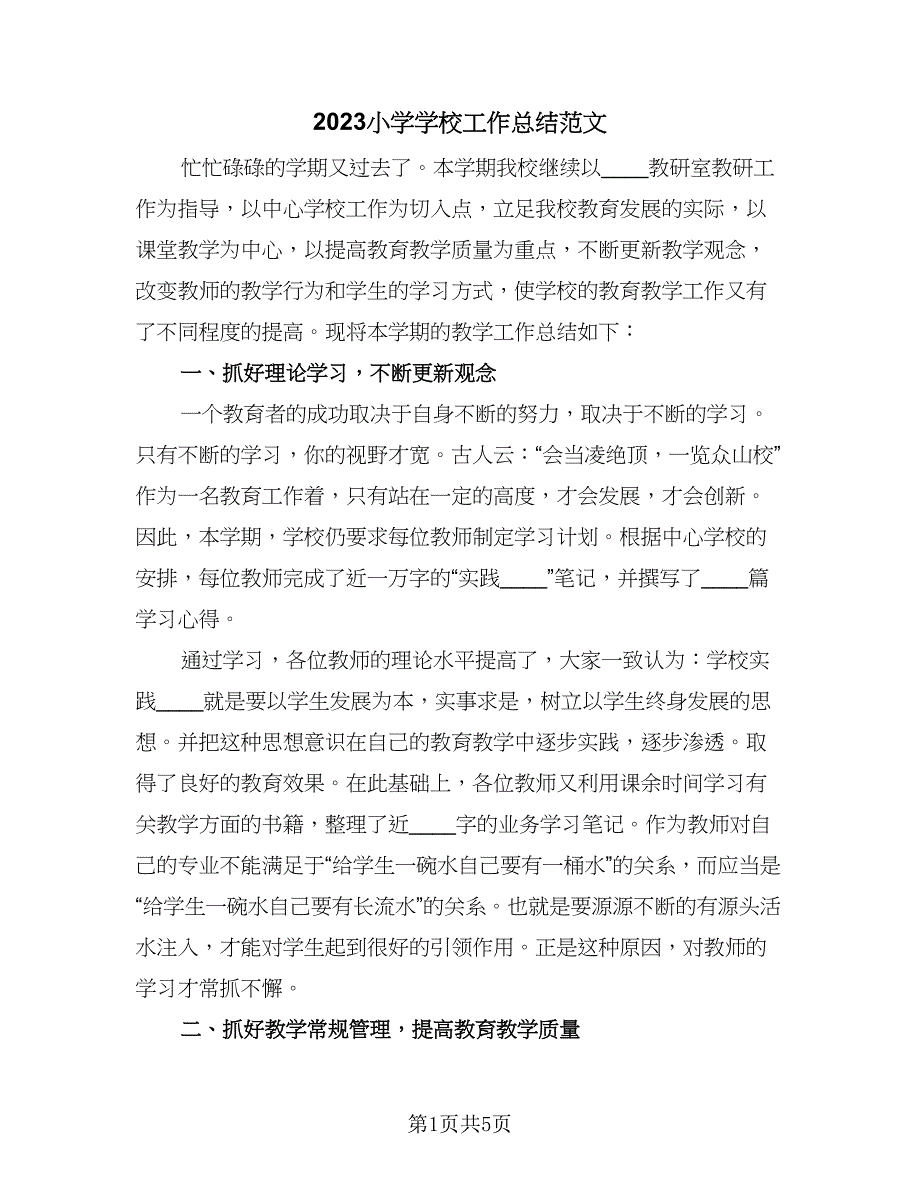 2023小学学校工作总结范文
忙忙碌碌的学期又过去了。本学期我校继续以____教研室教研工
作为指导，以中心学校工作为切入点，立足我校教育发展的实际，以
课堂教学为中心，以提高教育教学质量为重点，不断更新教学观念，
改变教师的教学行为和学生的学习方式，使学校的教育教学工作又有
了不同程度的提高。现将本学期的教学工作总结如下：
一、抓好理论学习，不断更新观念
一个教育者的成功取决于自身不断的努力，取决于不断的学习。
只有不断的学习，你的视野才宽。古人云：“会当凌绝顶，一览众山校”
作为一名教育工作着，只有站在一定的高度，才会发展，才会创新。
因此，本学期，学校仍要求每位教师制定学习计划。根据中心学校的
安排，每位教师完成了近一万字的“实践____”笔记，并撰写了____篇
学习心得。
通过学习，各位教师的理论水平提高了，大家一致认为：学校实
践____就是要以学生发展为本，实事求是，树立以学生终身发展的思
想。并把这种思想意识在自己的教育教学中逐步实践，逐步渗透。取
得了良好的教育效果。在此基础上，各位教师又利用课余时间学习有
关教学方面的书籍，整理了近____字的业务学习笔记。作为教师对自
己的专业不能满足于“给学生一碗水自己要有一桶水”的关系，而应当是
“给学生一碗水自己要有长流水”的关系。也就是要源源不断的有源头活
水注入，才能对学生起到很好的引领作用。正是这种原因，对教师的
学习才常抓不懈。
二、抓好教学常规管理，提高教育教学质量
第1页共5页